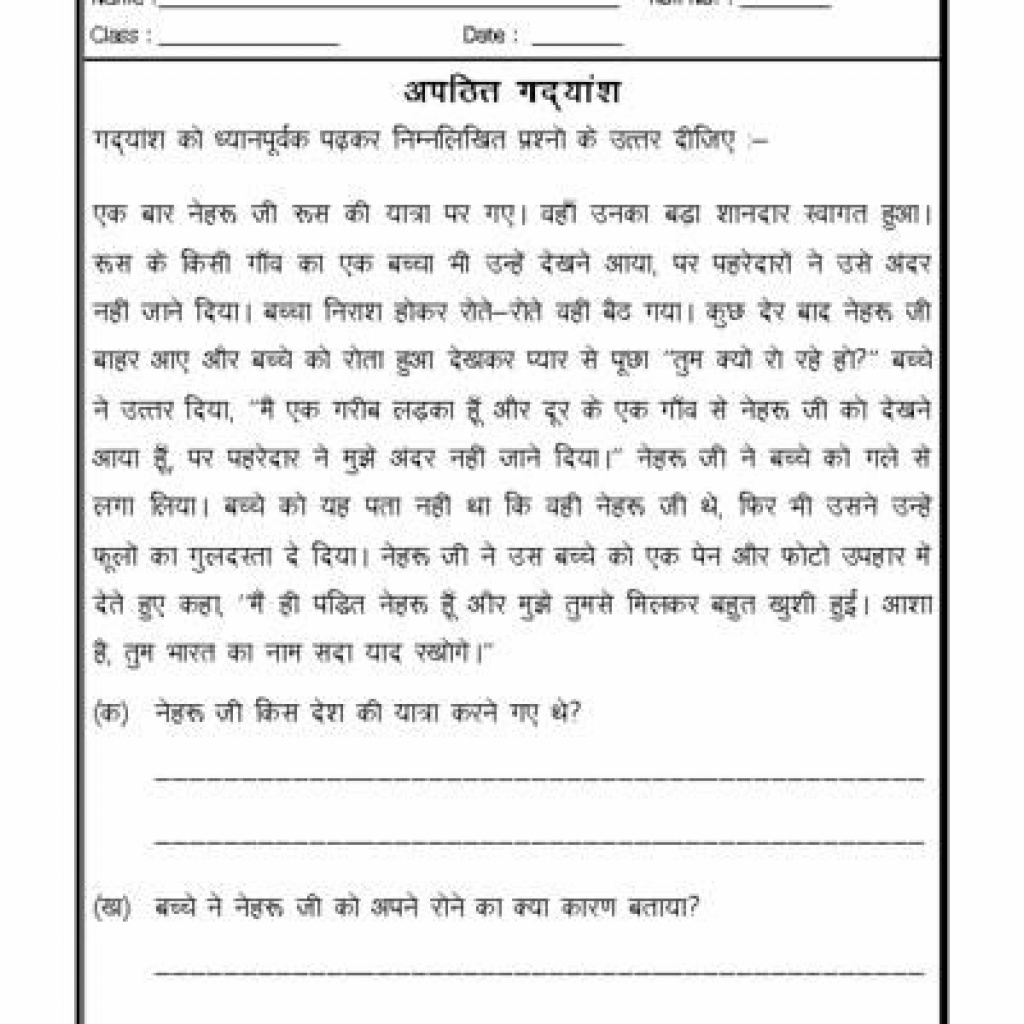 Class : ____________ Date : ______
अपठित गद्यांश
गद्यांश को ध्यानपूर्वक पढ़कर निम्नलिखित प्रश्नों के उत्तर दीजिए :–
एक बार नेहरू जी रूस की यात्रा पर गए। वहाँ उनका बड़ा शानदार स्वागत हुआ।
रूस के किसी गाँव का एक बच्चा भी उन्हें देखने आया, पर पहरेदारों ने उसे अंदर
नहीं जाने दिया। बच्चा निराश होकर रोते–रोते वहीं बैठ गया। कुछ देर बाद नेहरू जी
बाहर आए और बच्चे को रोता हुआ देखकर प्यार से पूछा "तुम क्यों रो रहे हो?" बच्चे
ने उत्तर दिया, "मैं एक गरीब लड़का हूँ और दूर के एक गाँव से नेहरू जी को देखने
आया हूँ, पर पहरेदार ने मुझे अंदर नहीं जाने दिया।" नेहरू जी ने बच्चे को गले से
लगा लिया। बच्चे को यह पता नहीं था कि वही नेहरू जी थे, फिर भी उसने उन्हें
फूलों का गुलदस्ता दे दिया। नेहरू जी ने उस बच्चे को एक पेन और फोटो उपहार में
देते हुए कहा, "मैं ही पंडित नेहरू हूँ और मुझे तुमसे मिलकर बहुत खुशी हुई। आशा
है, तुम भारत का नाम सदा याद रखोगे।"
(क) नेहरू जी किस देश की यात्रा करने गए थे?
(ख) बच्चे ने नेहरू जी को अपने रोने का क्या कारण बताया?